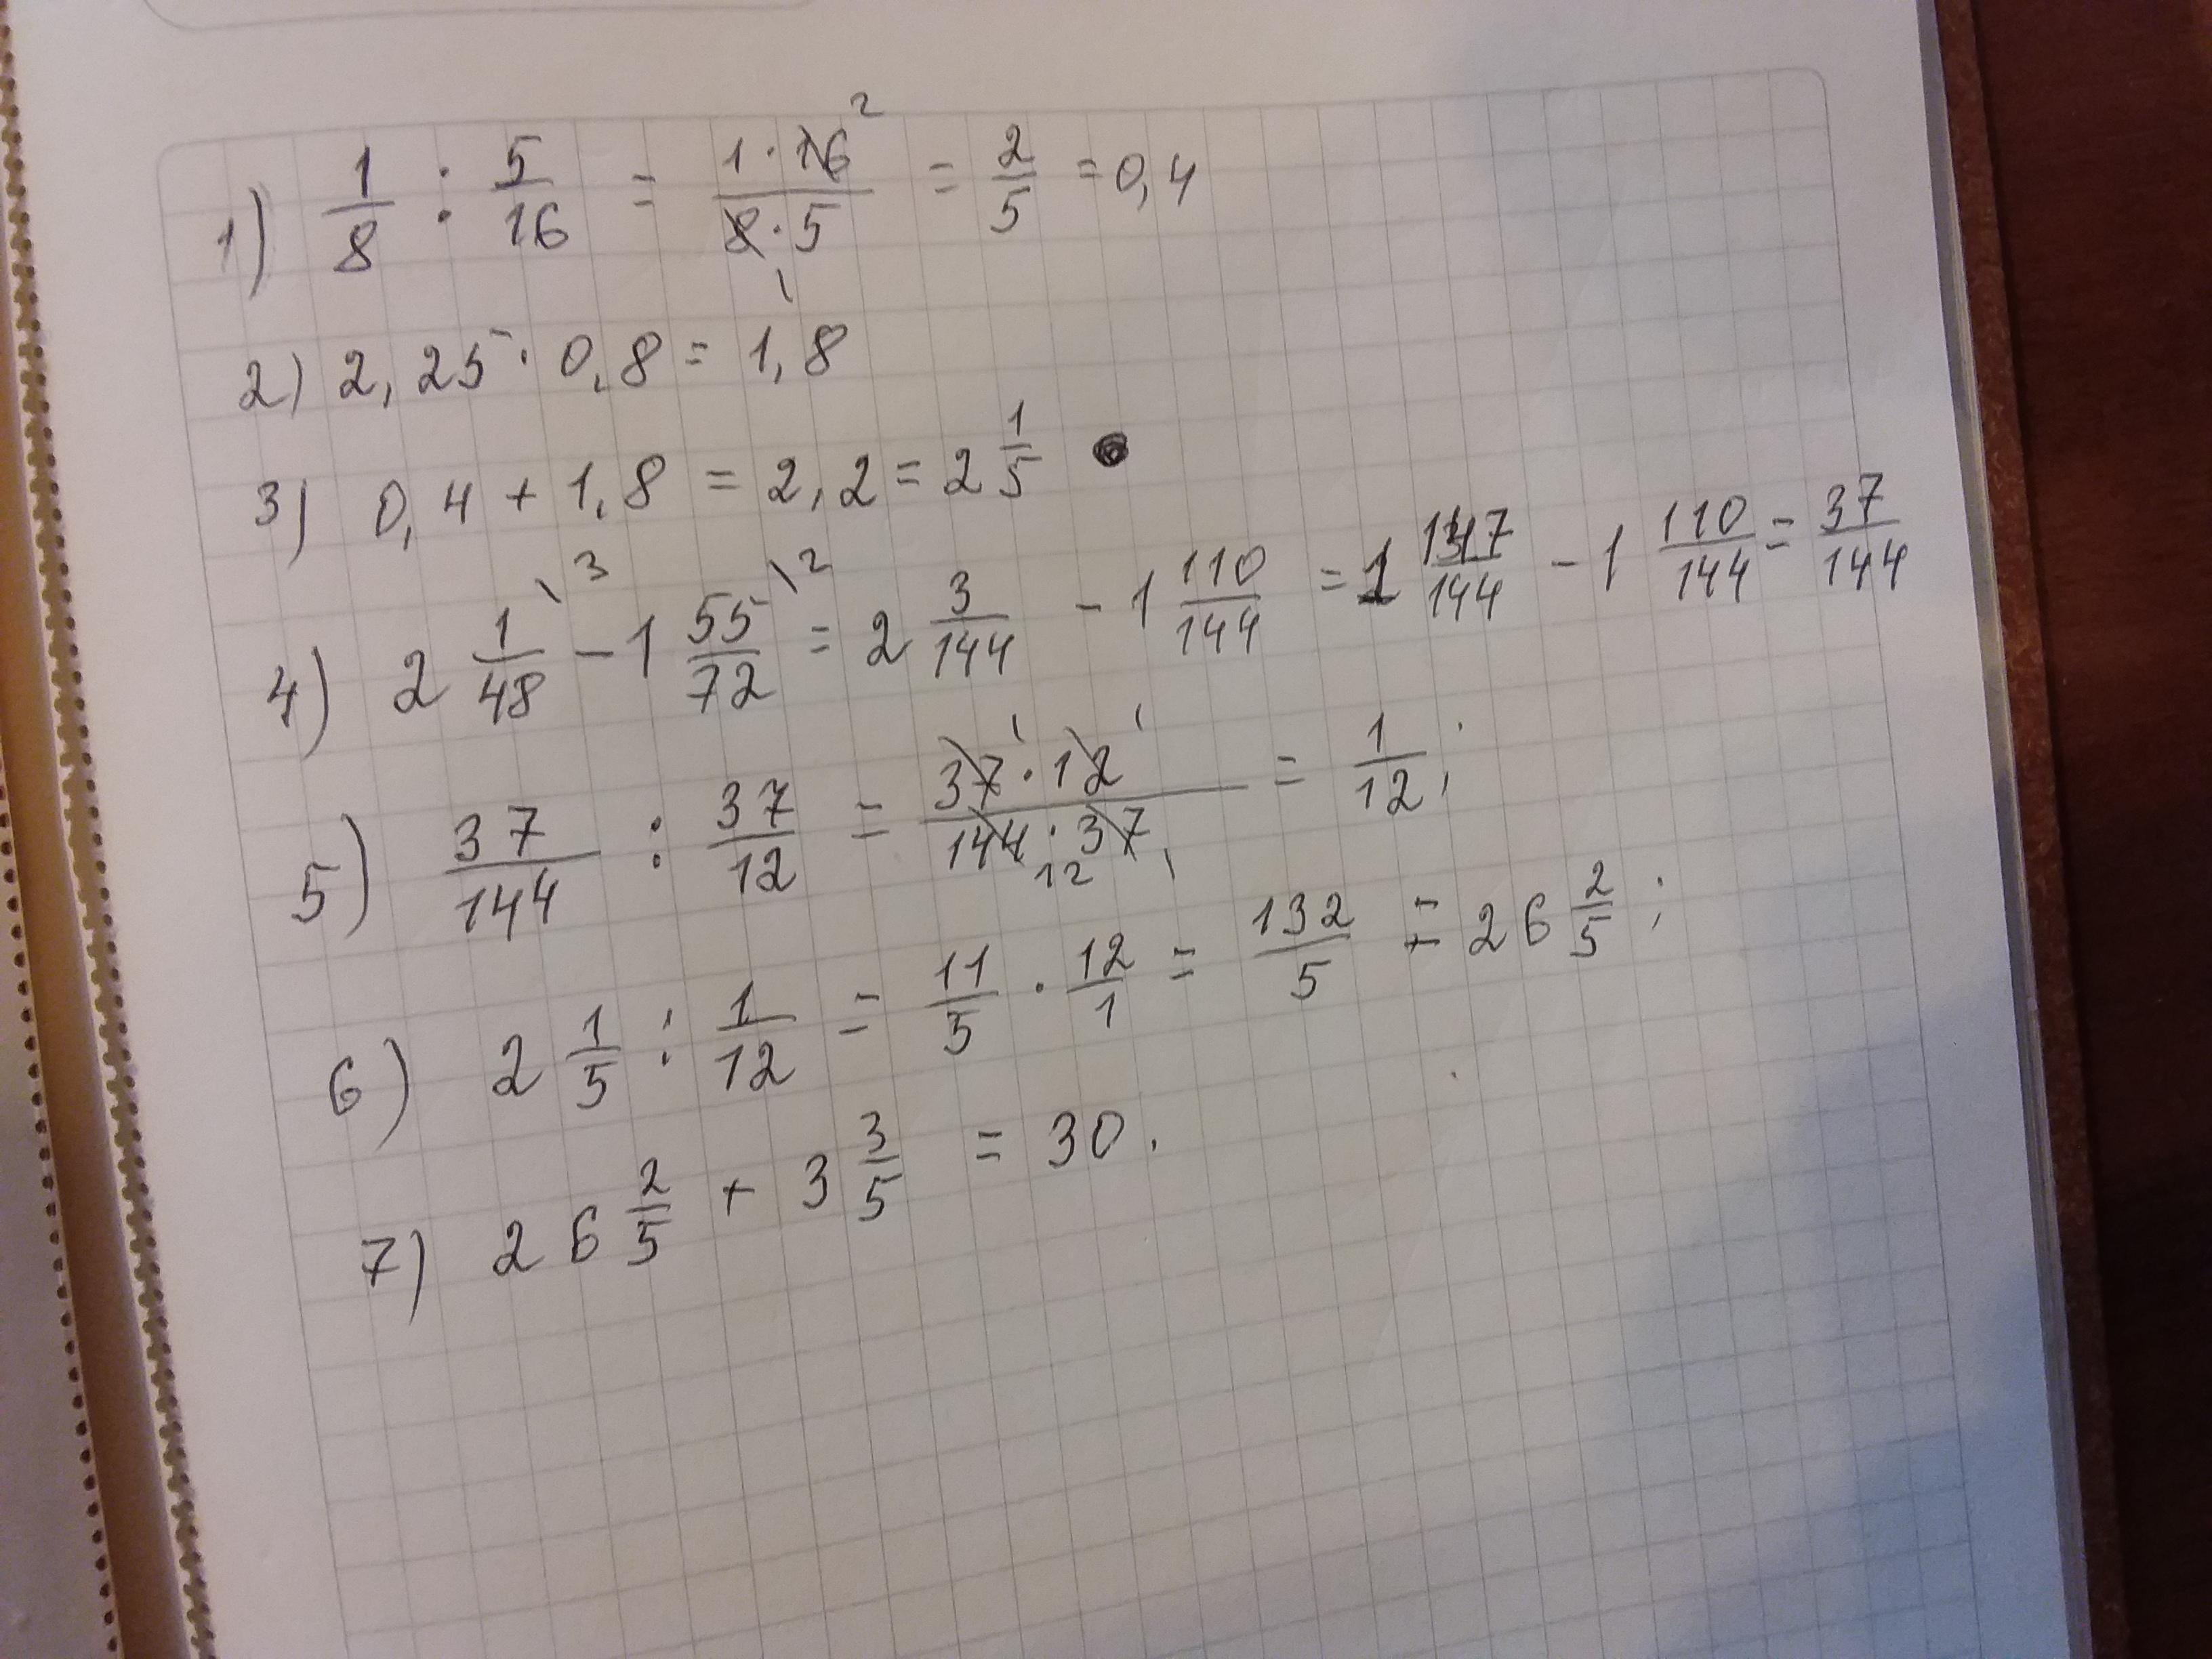 1) 1/8 : 5/16 = 1·16²/8·5 ₁ = 2/5 = 0,4
2) 2,25 · 0,8 = 1,8
3) 0,4 + 1,8 = 2,2 = 2 1/5
4) 2 1/48 \3 - 1 55/72 \2 = 2 3/144 - 1 110/144 = 1 147/144 - 1 110/144 = 37/144
5) 37/144 : 37/12 = 37¹·12¹/144₁₂·37₁ = 1/12;
6) 2 1/5 : 1/12 = 11/5 · 12/1 = 132/5 = 26 2/5;
7) 26 2/5 + 3 3/5 = 30.